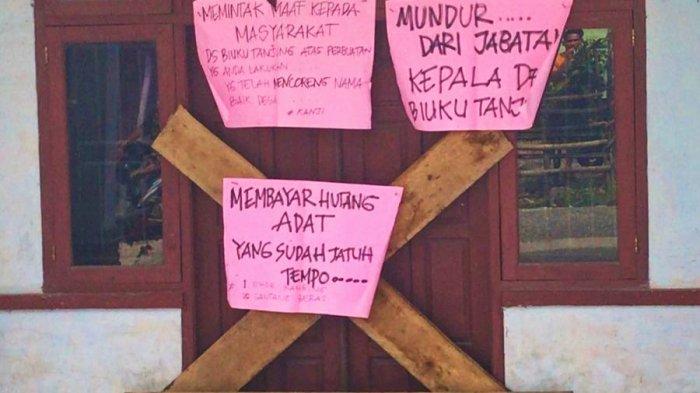 MEMINTAK MAAF KEPADA
MASYARAKAT
DS BIUKU TANJING ATAS PERBUATAN
YG ANDA LAKUKAN
YG TELAH MENCORENG NAMA
BAIK DESA
# KANJI
MUNDUR.....
DARI JABATA
KEPALA D
BIUKU TANJ
MEMBAYAR HUTANG
ADAT
YANG SUDAH JATUH
TEMPO.....
# 1
BERAS